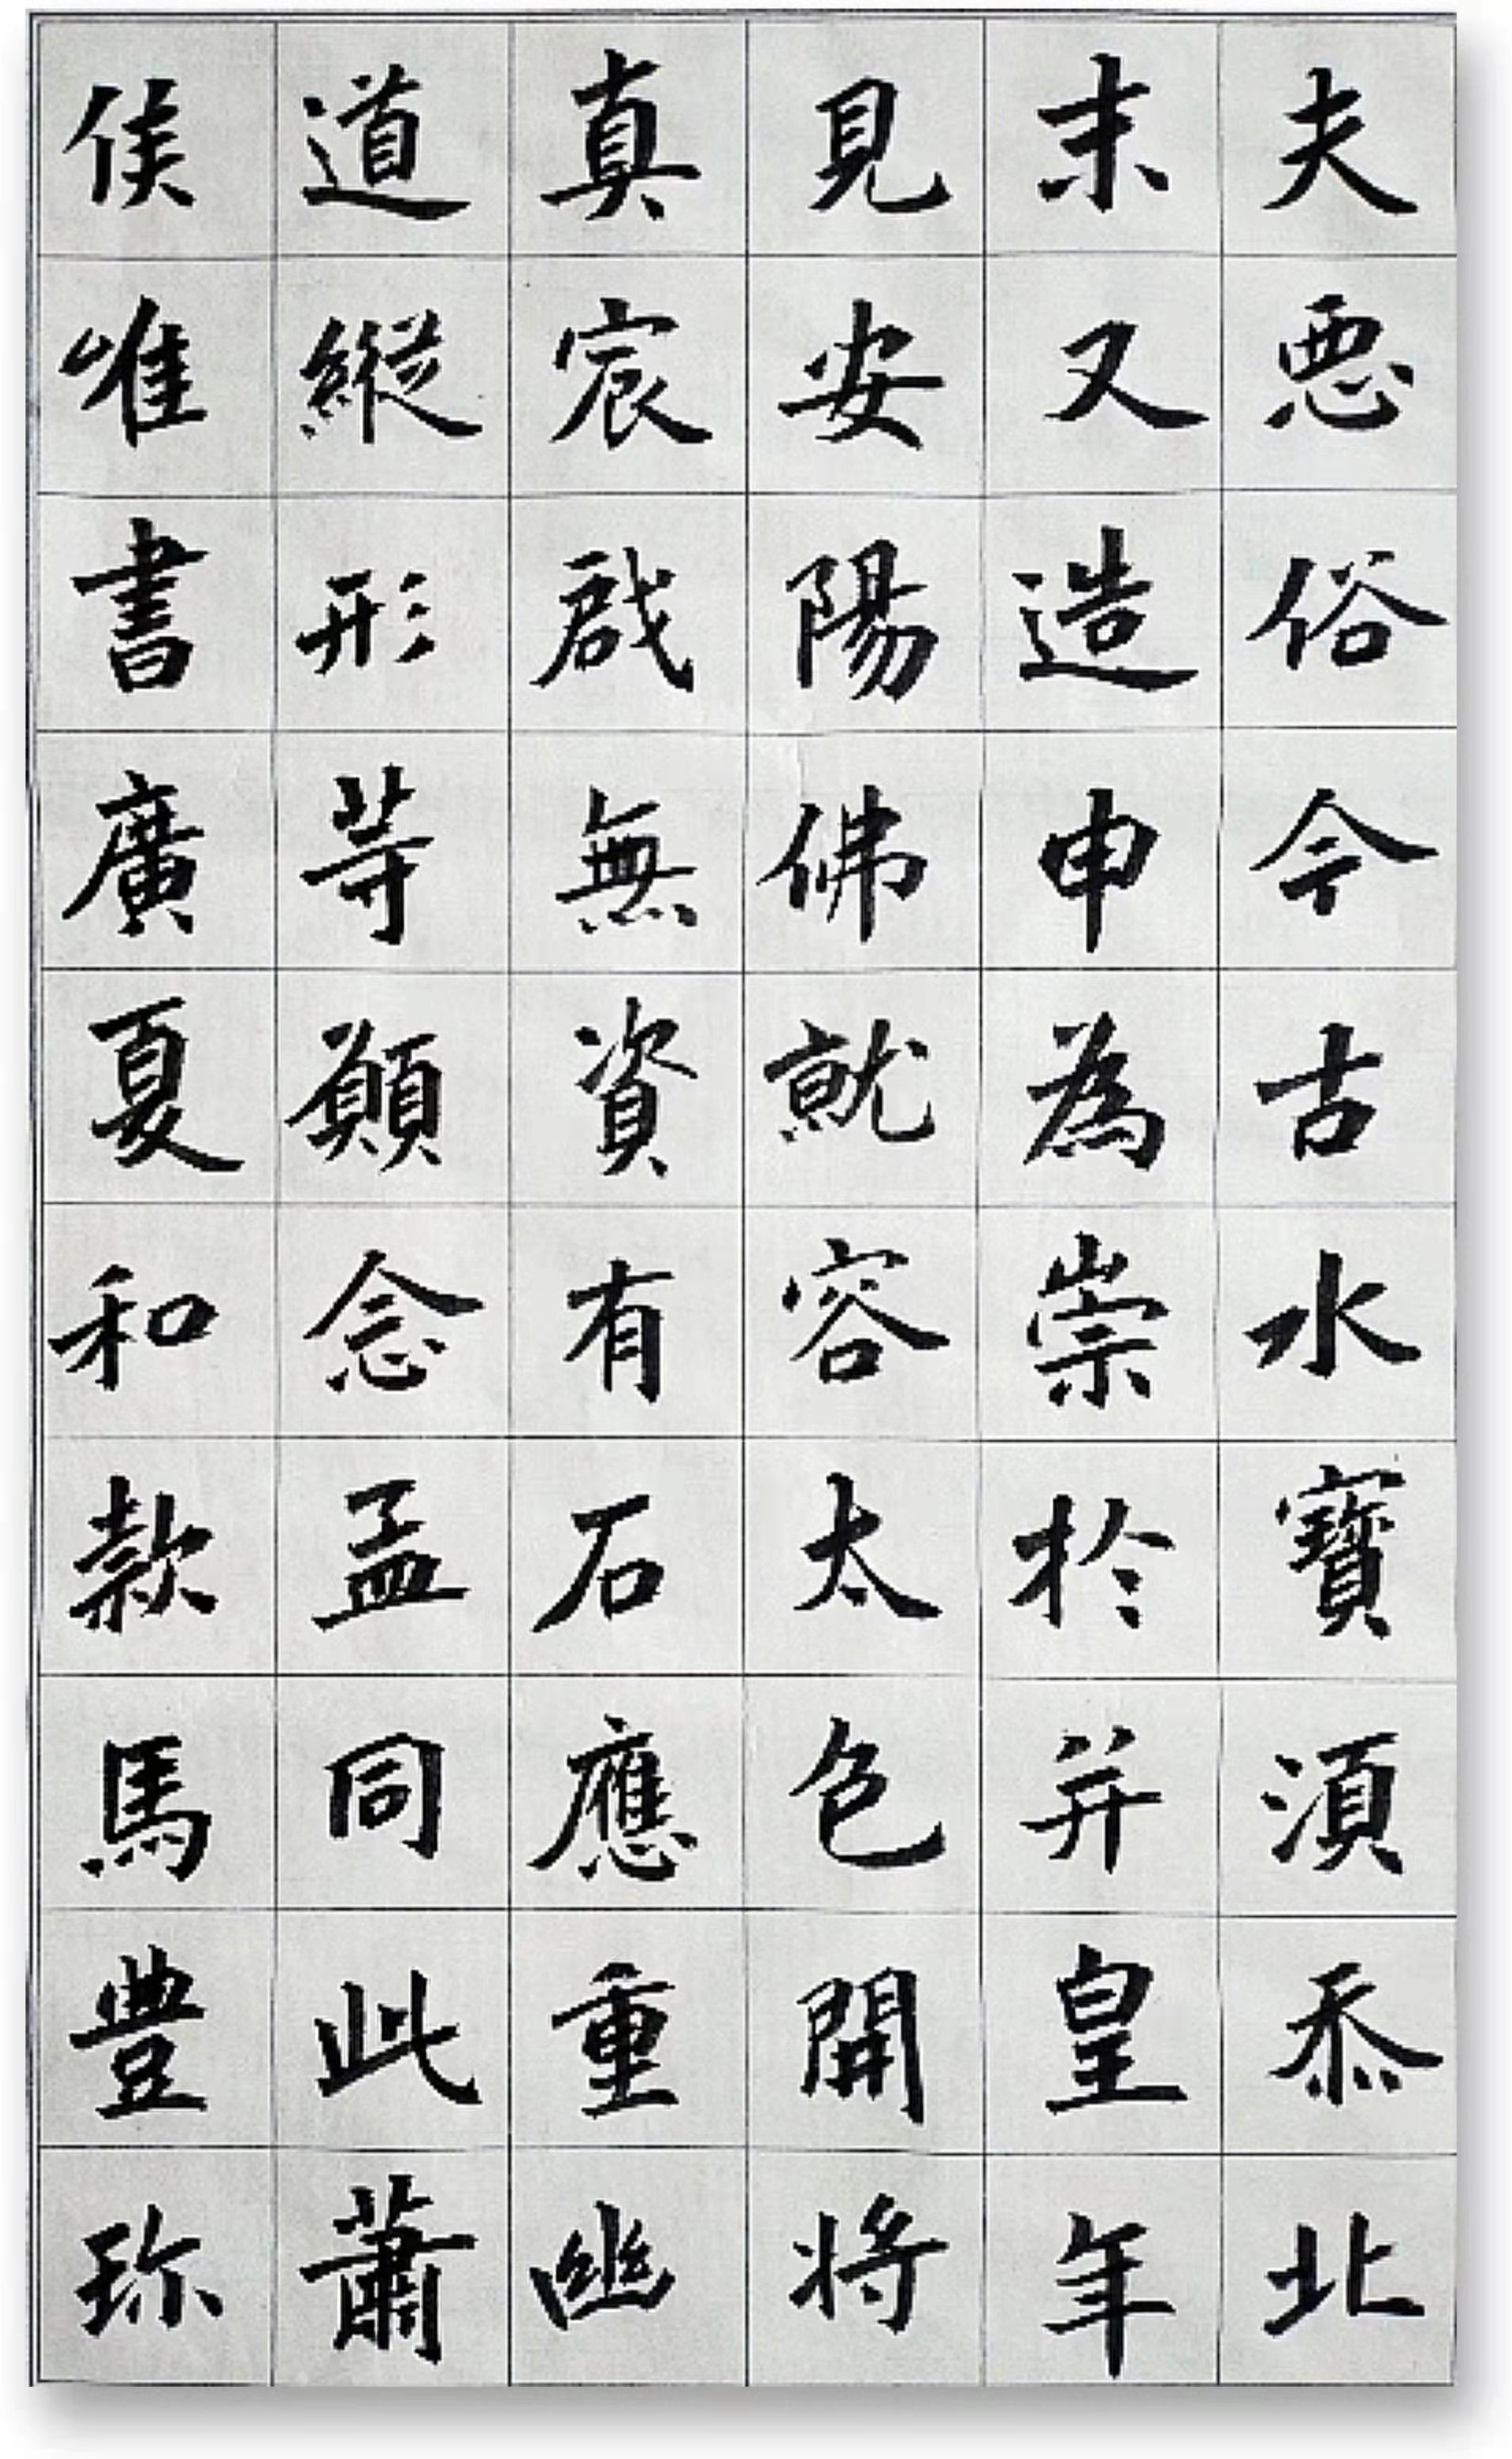 夫悪俗今古水寶湏忝北
末又造申為崇於并皇年
見安陽佛就容太色開將
真宸無資有石應重幽
道縱形等願念孟同此蕭
侯唯書廣夏和款馬豊珎